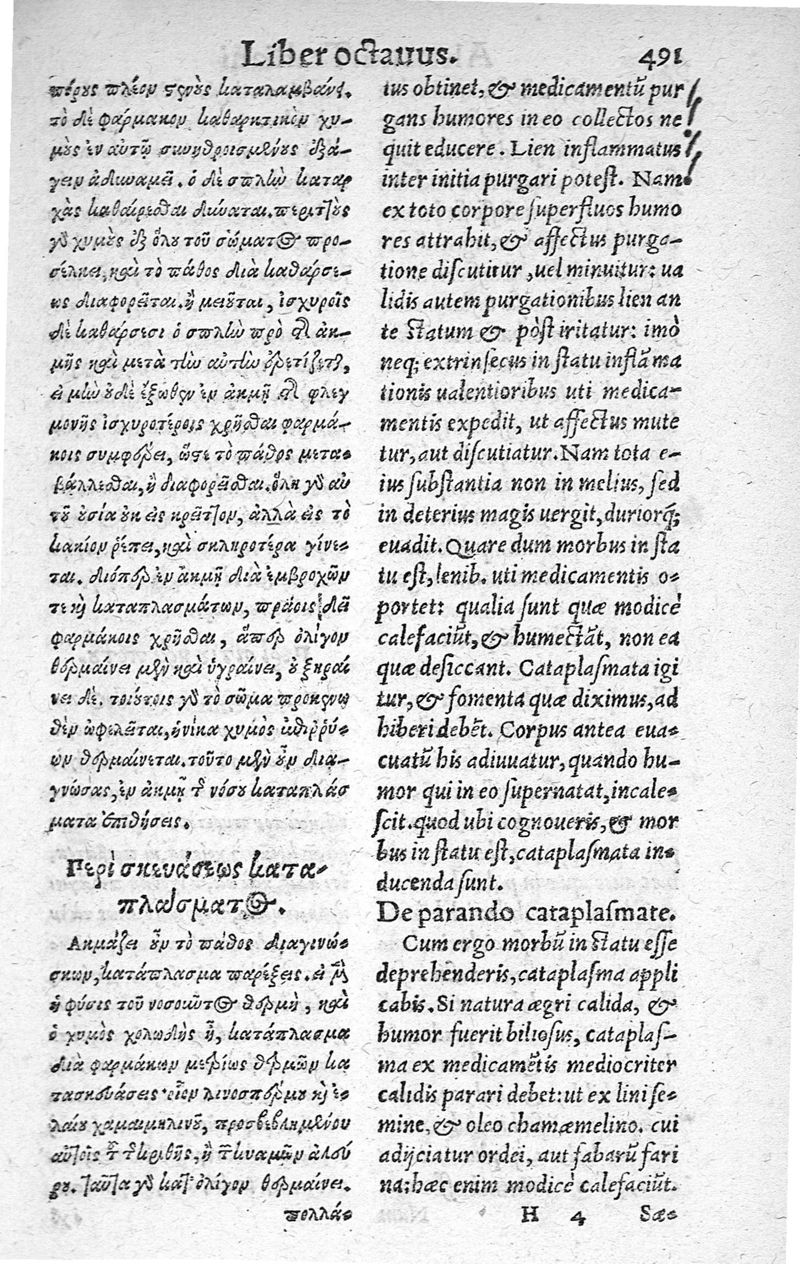 Liber octavus. 491
πέρους πλέον τινοὺς καταλαμβάνει.
τὸ δὲ φάρμακον καθαρητικὸν χυ-
μοὺς ἐν αὐτῷ συνηθροισμένους ἐξά-
γειν ἀδυναμεῖ. ὁ δὲ σπλὴν καταρ
χὰς καθαίρεσθαι δύναται. περιττοὺς
γὸ χυμοὺς ἐξ ὅλου τοῦ σώματος προ-
σέλκει, καὶ τὸ πάθος διὰ καθάρσε-
ως διαφορεῖται. ἢ μειοῦται, ἰσχυροῖς
δὲ καθάρσεσι ὁ σπλὴν πρὸ τῆς ἀκ-
μῆς καὶ μετὰ τὴν αὐτὴν ἐρετίζεται,
εἰ μὴν οὐδὲ ἔξωθεν ἐν ἀκμῇ τῆς φλεγ
μονῆς ἰσχυροτέροις χρῆσθαι φαρμά-
κοις συμφέρει, ὥστε τὸ πάθος μετα-
βάλλεσθαι, ἢ διαφορεῖσθαι. ὅλη γὸ αὐ
τοῦ οὐσία οὐκ εἰς κρεῖττον, ἀλλὰ εἰς τὸ
κακίον ῥέπει, καὶ σκληροτέρα γίνε-
ται. διόπερ ἐν ἀκμῇ διὰ ἐμβροχῶν
τε καὶ καταπλασμάτων, πράοις δεῖ
φαρμάκοις χρῆσθαι, ἅπερ ὀλίγον
θερμαίνει μὲν καὶ ὑγραίνει, οὐ ξηραί
νει δὲ. τοιούτοις γὸ τὸ σῶμα προκενω
θὲν ὠφελεῖται, ἡνίκα χυμὸς ἐπιῤῥύ-
ων θερμαίνεται. τοῦτο μὲν οὖν δια-
γνώσας, ἐν ἀκμῇ τῆς νόσου καταπλάσ
ματα ἐπιθήσεις.
Περὶ σκευάσεως κατα-
πλάσματος.
Ακμάζει οὖν τὸ πάθος διαγινώσ-
κων, κατάπλασμα παρέξεις. εἰ μὲν
ἡ φύσις τοῦ νοσοῦντος θερμὴ, καὶ
ὁ χυμὸς χολώδης ᾖ, κατάπλασμα
διὰ φαρμάκων μετρίως θερμῶν κα
τασκευάσεις οἷον λινοσπέρμου καὶ ἐ-
λαίου χαμαιμηλίνου, προσβεβλημένου
αὐτοῖς τοῦ τῆς κριθῆς, ἢ τῶν κυαμῶν ἀλεύ
ρου. ταῦτα γὸ κατ' ὀλίγον θερμαίνει.
πολλά-
tus obtinet, & medicamentū pur
gans humores in eo collectos ne
quit educere. Lien inflammatus
inter initia purgari potest. Nam
ex toto corpore superfluos humo
res attrahit, & affectus purga-
tione discutitur, uel minuitur: ua
lidis autem purgationibus lien an
te statum & pòst iritatur: imò
neq; extrinsecus in statu inflāma
tionis ualentioribus uti medica-
mentis expedit, ut affectus mute
tur, aut discutiatur. Nam tota e-
ius substantia non in melius, sed
in deterius magis uergit, duriorq;
euadit. Quare dum morbus in sta
tu est, lenib. uti medicamentis o-
portet: qualia sunt quæ modicè
calefaciūt, & humectāt, non ea
quæ desiccant. Cataplasmata igi
tur, & fomenta quæ diximus, ad
hiberi debēt. Corpus antea eua-
cuatū his adiuuatur, quando hu-
mor qui in eo supernatat, incale-
scit. quod ubi cognoueris, & mor
bus in statu est, cataplasmata in-
ducenda sunt.
De parando cataplasmate.
Cum ergo morbū in statu esse
deprehenderis, cataplasma appli
cabis. Si natura ægri calida, &
humor fuerit biliosus, cataplas-
ma ex medicamētis mediocriter
calidis parari debet: ut ex lini se-
mine, & oleo chamæmelino. cui
adijciatur ordei, aut fabarū fari
na: hæc enim modicè calefaciūt.
H 4 Sæ-